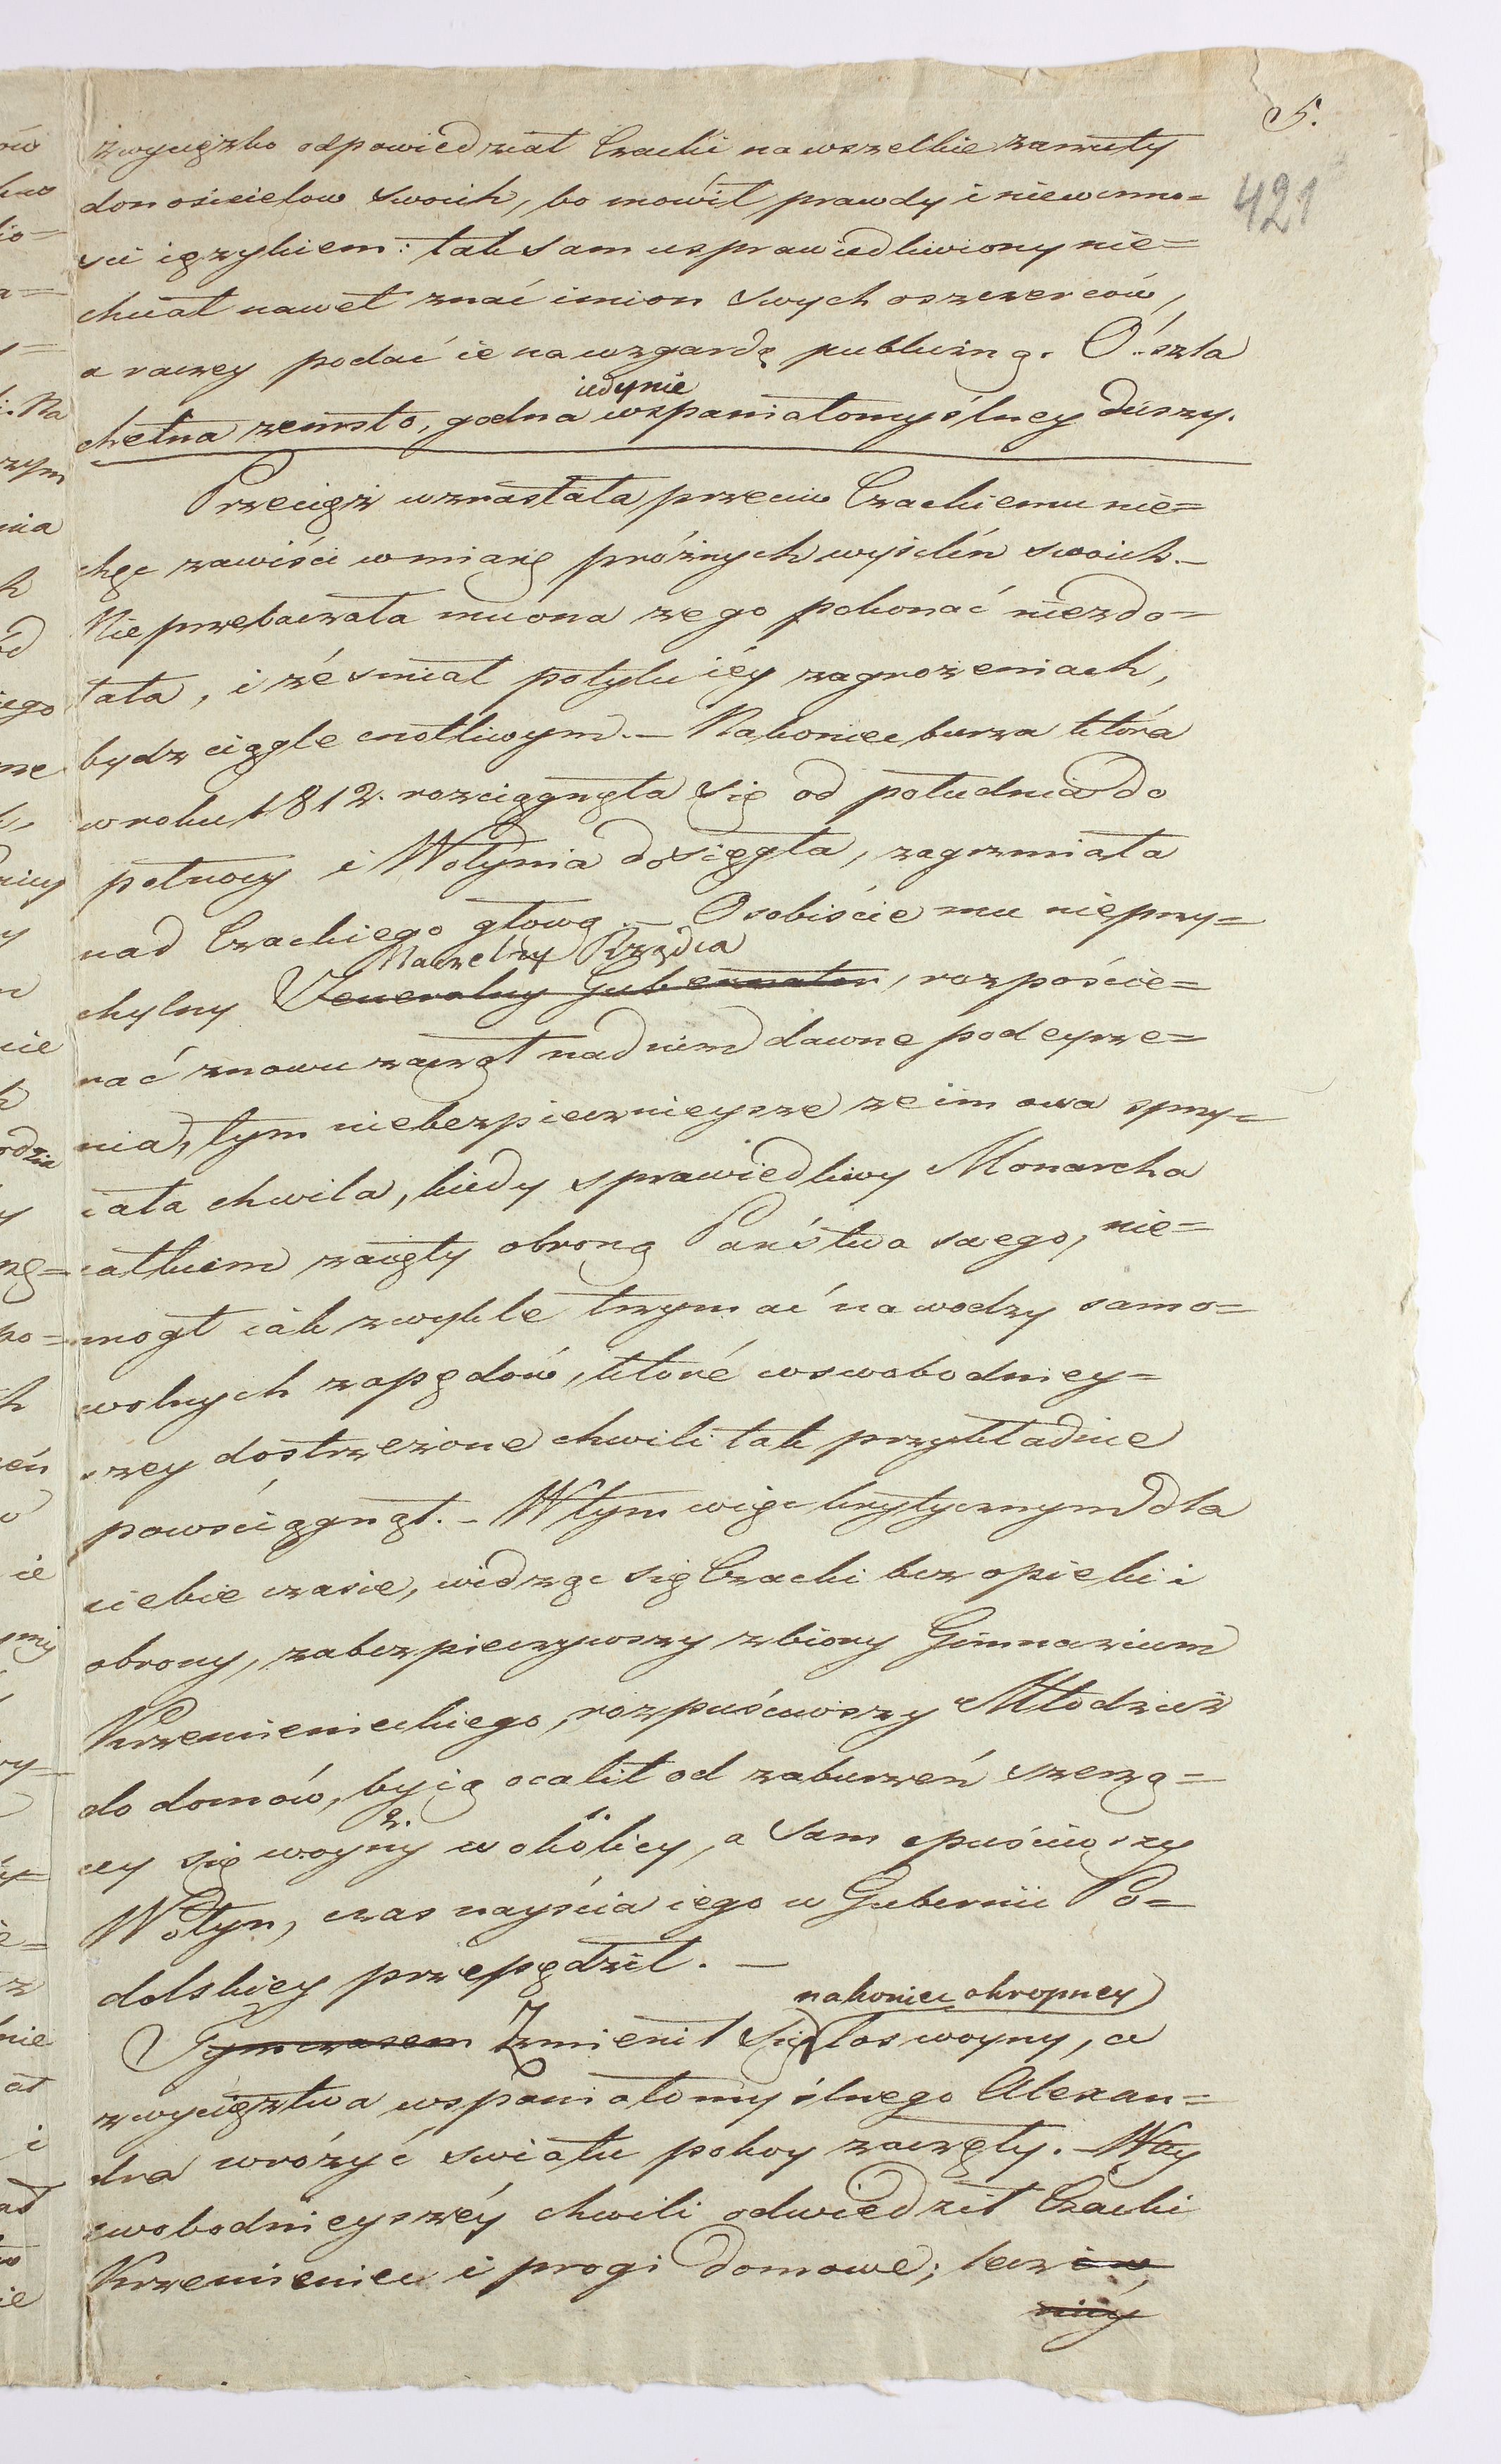 5.
421
zwycięzko odpowiedział Czacki na wszelkie zarzuty
donosicielow swoich, bo mówił prawdy i niewinno=
ści ięzykiem: tak sam usprawiedliwiony nie=
chciał nawet znać imion swych oszczerców,
a raczey podać ie na wzgardę publiczną. O! szla
iedynie
chetna zemsto, godna wspaniałomyślney duszy.
Przeciąż wzrastała przeciw Czackiemu nie=
chęc zawiści w miarę próżnych wysileń swoich.—
Nie przebaczała mu ona ze go pokonać niezdo=
łała, i że śmiał po tylu iéy zagrożeniach,
bydz ciągle cnotliwym.— Nakoniec burza która
w roku 1812. rozciągnęła się od południa do
pełnocy i Wołynia dosięgła, zagrzmiała
nad Czackiego głową.— Osobiście mu nieprzy=
Naczelny Rządca
chylny Jeneralny Gubernator, rozpoście=
rać znowu zaczął nad nim dawne podeyrze=
nia, tym niebezpiecznieysze ze im owa sprzy=
iała chwila, kiedy sprawiedliwy Monarcha
całkiem zaięty obroną Państwa swego, nie=
mogł iak zwykle trzymać na wodzy samo=
wolnych zapędów, które w swobodniey=
szey dostrzeżone chwili tak przykładnie
powściągnął.— W tym więc krytycznym dla
siebie czasie, widząc się Czacki bez opieki i
obrony, zabezpieczywszy zbiory Gimnazium
Krzemienieckiego, rozpuściwszy Młodzież
do domów, by ią ocalił od zaburzeń szerzą=
2.
cey się woyny w okolicy, a sam opuściwszy
Wołyn, czas nayścia iego w Gubernii Po=
dolskiey przepędził.—
nakoniec okropney
Tymczasem Zmienił się los woyny, a
zwycięztwa wspaniałomyślnego Alexan=
dra wróżyć swiatu pokoy zaczęły.— W tey
swobodnieyszéy chwili odwiedził Czacki
Krzemieniec i progi domowe; lecz i w
niéy